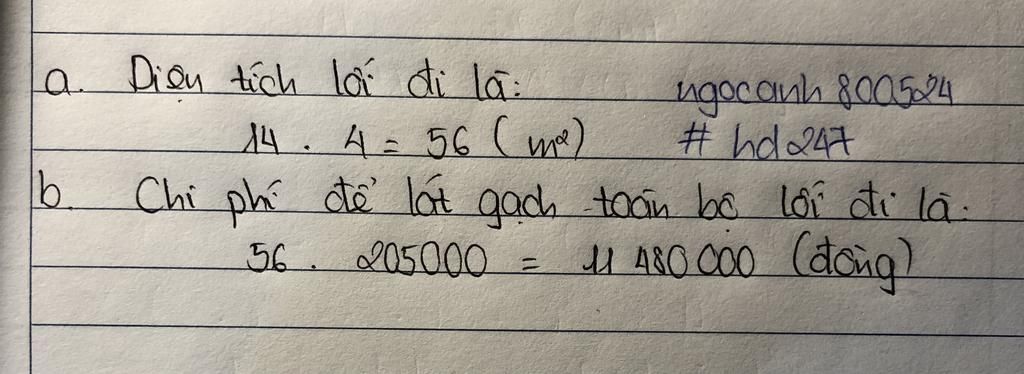 a. Diện tích lối đi là: ngocanh800524
14 . 4 = 56 (m²) # hd247
b. Chi phí để lát gạch toàn bộ lối đi là:
56 . 205000 = 11 480 000 (đồng)